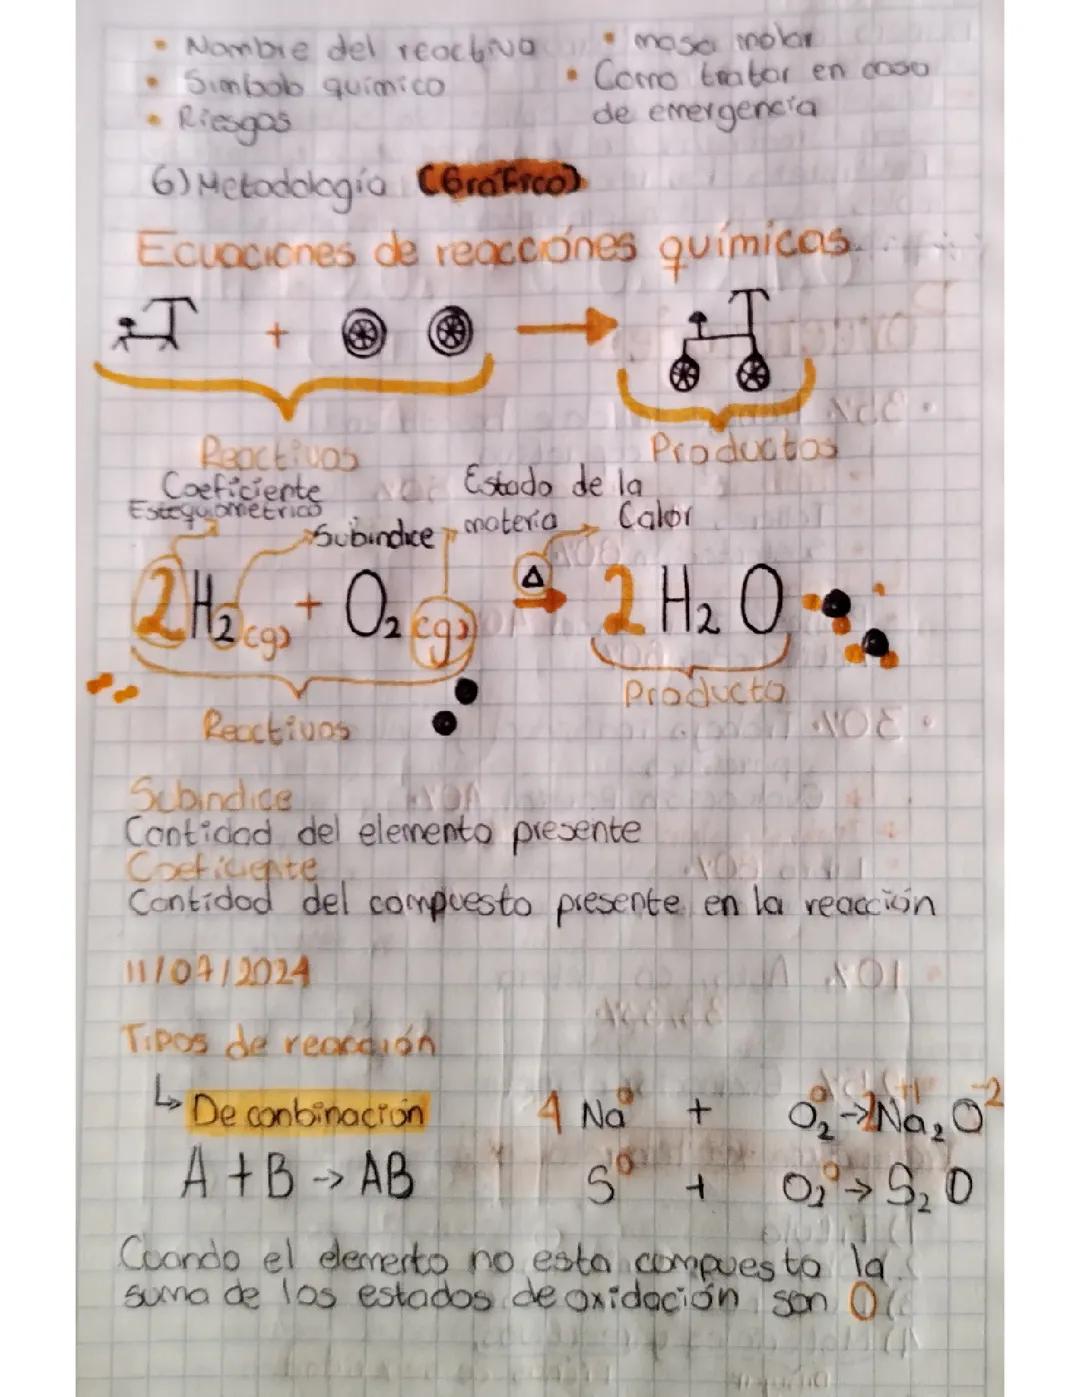 • Nombre del reactivo
• Simbolo químico
• Riesgos
• masa molar
• Como tratar en caso
de emergencia
6) Metodología (Gráfico)
Ecuaciones de reacciónes químicas
+
Reactivos
Productos
Coeficiente
Estequiométrico
Subindice
Estado de la
materia
Calor
2H₂(g) + O₂(g) Δ→ 2H₂O
Reactivos
Producto
Subindice
Cantidad del elemento presente
Coeficiente
Cantidad del compuesto presente en la reacción
11/07/2024
Tipos de reacción
↳ De conbinación
A + B → AB
4 Na⁰ + O₂⁰ → 2Na₂⁺¹O⁻²
S⁰ + O₂⁰ → S₂O
Cuando el elemento no esta compuesto la
suma de los estados de oxidación son 0